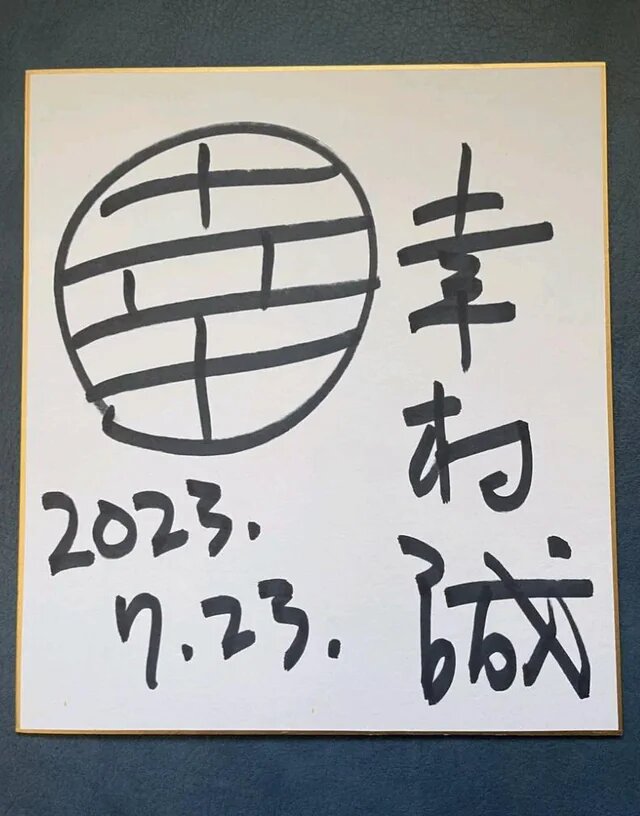 幸村誠
幸
2023.
7.23.